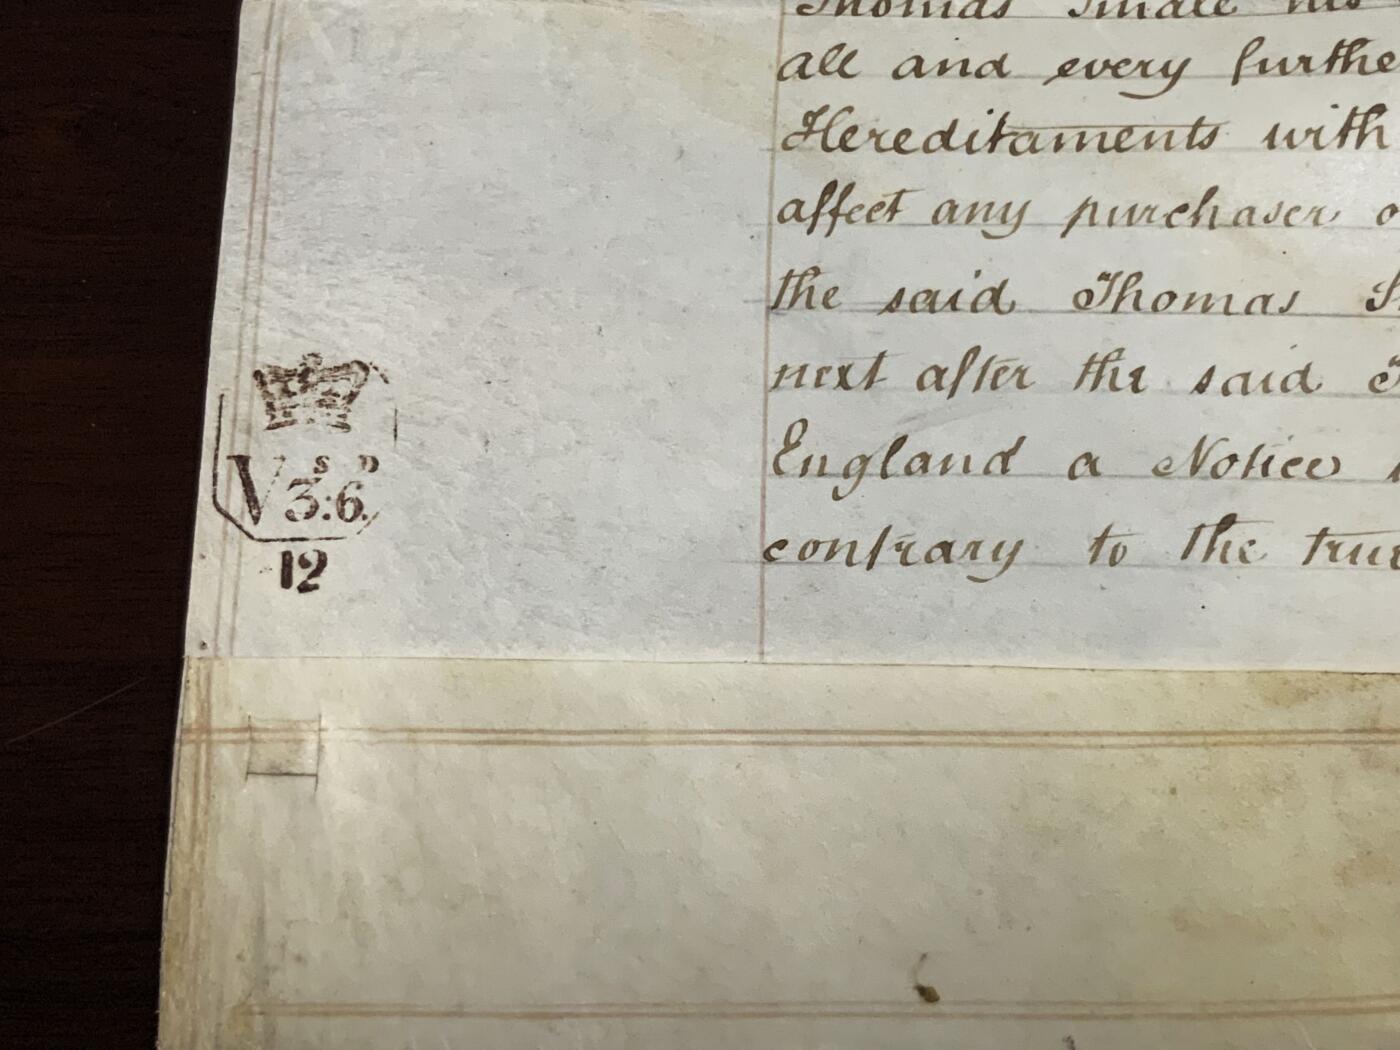 Thomas Smale his
all and every furthe
Hereditaments with
affect any purchaser o
the said Thomas S
next after the said T
England a Notice
contrary to the true
V S D
3:6.
12